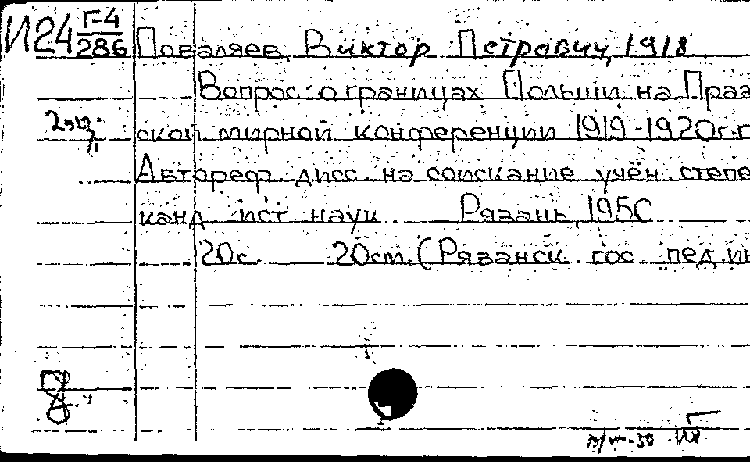 И24 Г-4/286 Поваляев, Виктор Петрович, 1918
Вопрос о границах Польши на Праз
2 экз. ской мирной конференции 1919-1920г.г
Автореф. дисс. на соискание учён. степе
канд. ист. наук. Рязань, 1950
20с. 20см. (Рязанск. гос. пед. ин
8